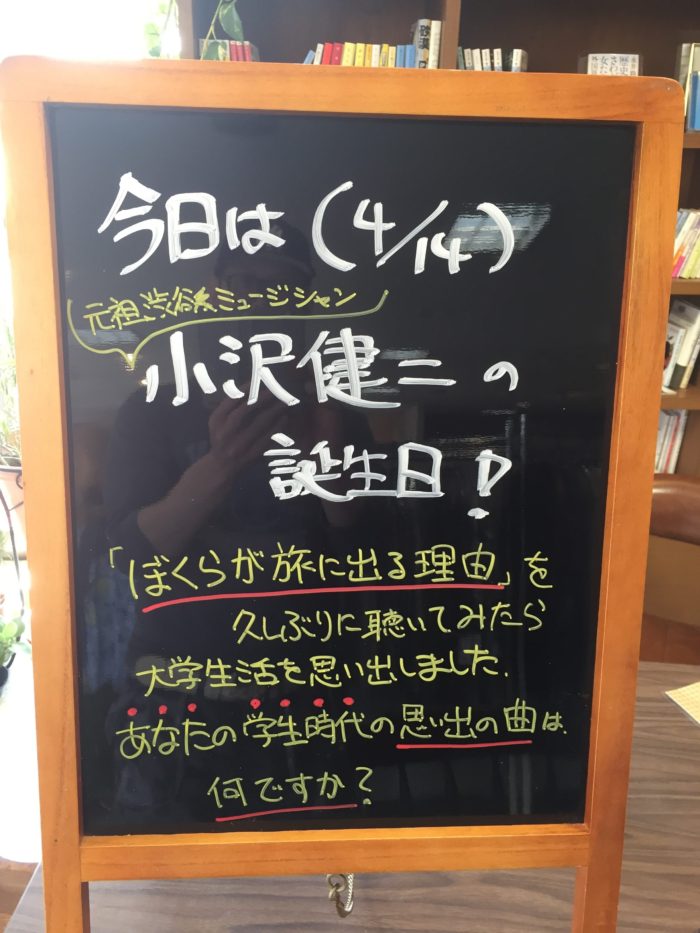 今日は(4/14)
元祖、渋谷系ミュージシャン
小沢健二の
誕生日!
「ぼくらが旅に出る理由」を
久しぶりに聴いてみたら
大学生活を思い出しました.
あなたの学生時代の思い出の曲は、
何ですか?